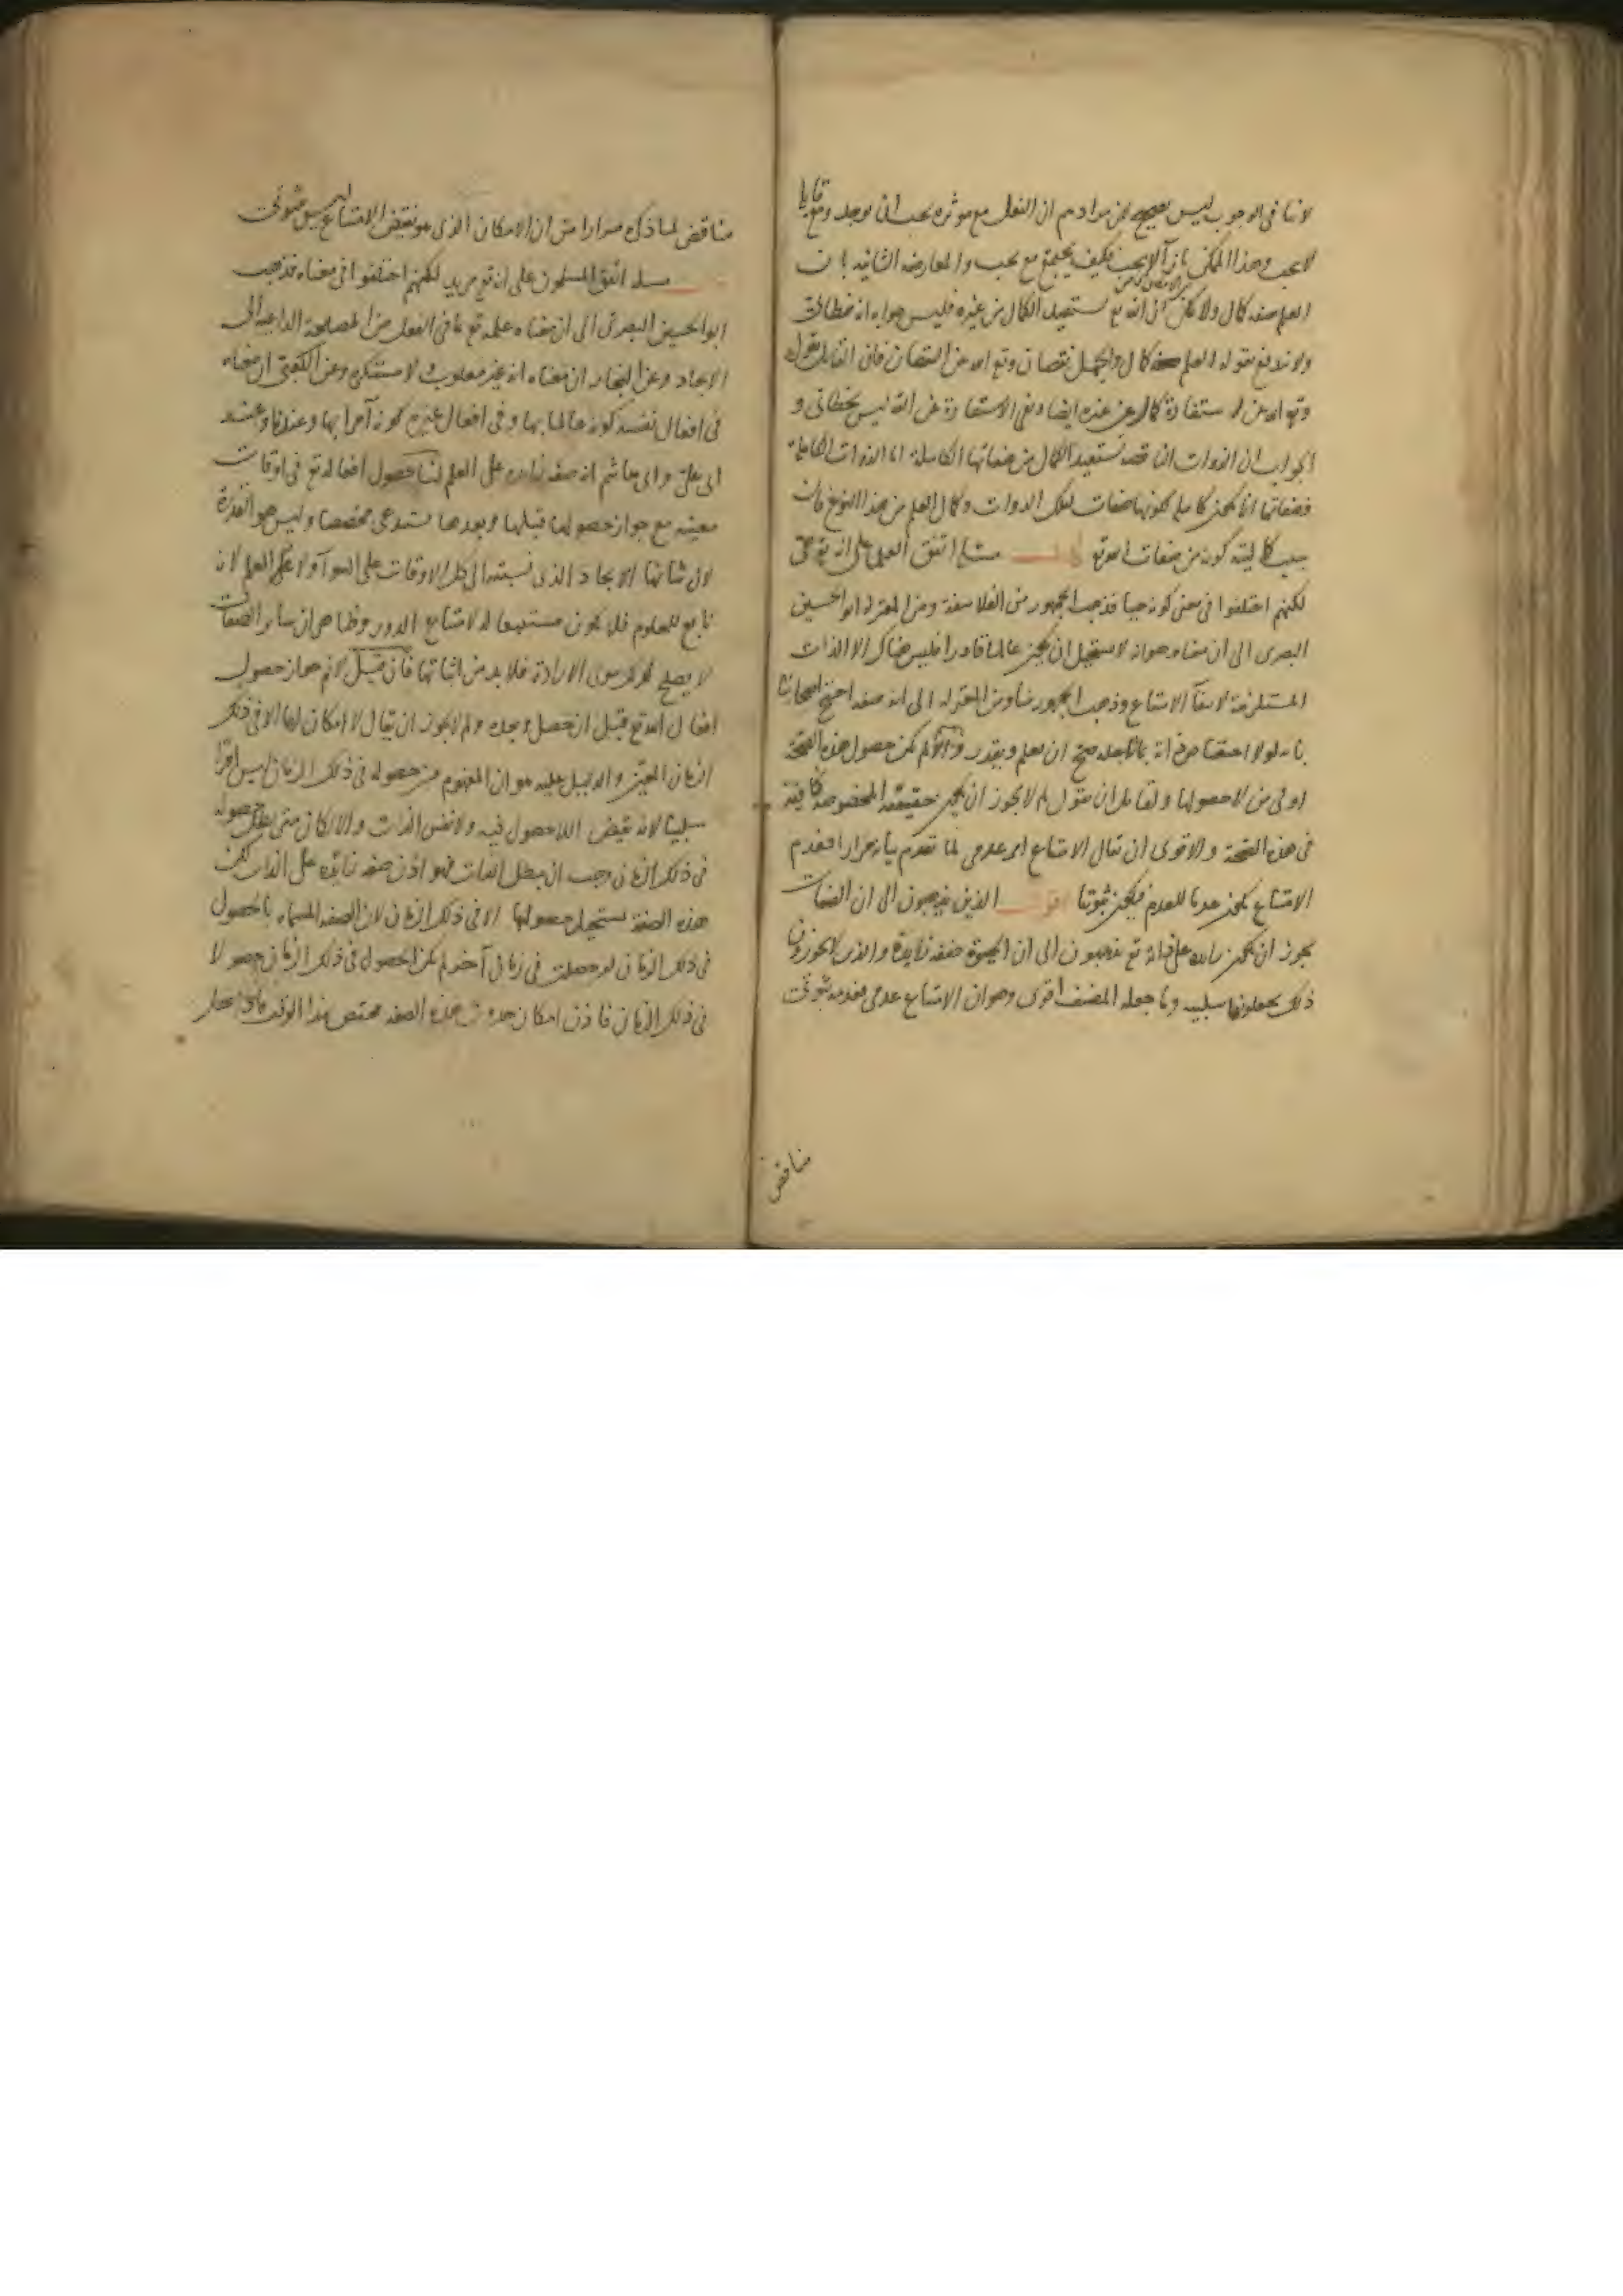 لانا فى الوجوب ليس بصحيح لان مرادهم ان الفعل مع موثره يجب ان يوجد ومع
لا يجب وهذا الممكن بان لا يجب فكيف يجتمع مع يجب والمعارضه الثانيه بان
العلم صفه كمال ولا يمكن ان الله تع يستفيد الكمال من غيره فليس جوابه انه خطابى
ولا يندفع بقوله العلم صفة كمال والجهل نقصان وتع الله عن النقصان فان القايل يقول
وتع الله عن استفادة كمال من غيره ايضا ونفى الاستفادة عن الله ليس بخطابى و
الجواب ان الذوات الناقصه تستفيد الكمال من صفاتها الكاملة اما الذوات الكاملة
فصفاتها انما يكون كاملة لكونها صفات لتلك الذوات وكمال العلم من هذا النوع فان
سبب كماليته كونه من صفات الله تع قال مسئلة اتفق العلما على انه تع حى
لكنهم اختلفوا فى معنى كونه حيا فذهب الجمهور من الفلاسفة ومن المعتزله ابو الحسين
البصرى الى ان معناه هو انه لا يستحيل ان يكون عالما قادرا فليس هناك الا الذات
المستلزمة لانتفآ الامتناع وذهب الجمهور منا ومن المعتزله الى انه صفه احتج اصحابنا
بانه لولا اختصاص ذاته بما لاجله صح ان يعلم ويقدر والا لم يكن حصول هذه الصحة
اولى من لا حصولها ولقايل ان يقول لم لا يجوز ان يكون حقيقته المخصوصة كافية
فى هذه الصحة والاقوى ان يقال الامتناع امر عدمى لما تقدم بيانه مرارا فعدم
الامتناع يكون عدما للعدم فيكون ثبوتيا اقول الذين يذهبون الى ان الصفات
يجوز ان يكون زايده على ذاته تع يذهبون الى ان الحيوة صفه زايدة والذين لا يجوزون
ذلك يجعلونها سلبيه وما جعله المصنف اقوى وهو ان الامتناع عدمى فعدمه ثبوتى
مناقض
مناقض لما ذكره مرارا من ان الامكان الذى هو نقيض الامتناع ليس بثبوتى
مسئلة اتفق المسلمون على انه تع مريد لكنهم اختلفوا فى معناه فذهب
ابو الحسين البصرى الى ان معناه علمه تع بما فى الفعل من المصلحة الداعيه الى
الايجاد وعن النجار ان معناه انه غير مغلوب ولا مستكره وعن الكعبى ان معناه
فى افعال نفسه كونه عالما بها وفى افعال غيره كونه آمرا بها وعندنا وعند
ابى على وابى هاشم انه صفه زايده على العلم لنا حصول افعاله تع فى اوقات
معينه مع جواز حصولها قبلها وبعدها يستدعى مخصصا وليس هو القدرة
لان شانها الايجاد الذى نسبته الى كل الاوقات على السوآ ولا العلم لان
تابع للمعلوم فلا يكون مستتبعا له لامتناع الدور وظاهر ان ساير الصفات
لا يصلح لذلك سوى الارادة فلا بد من اثباتها فان قيل لانم جواز حصول
افعال الله تع قبل ان حصل وبعده ولم لا يجوز ان يقال لا امكان لها الا فى ذلك
الزمان المعين والدليل عليه هو ان المفهوم من حصوله فى ذلك الزمان ليس امرا
سلبيا لانه نقيض اللا حصول فيه ولا نفس الذات والا لكان متى بطل حصوله
فى ذلك الزمان وجب ان يبطل الذات فهو اذن صفه زايده على الذات لكن
هذه الصفة يستحيل حصولها الا فى ذلك الزمان لان الصفه المسماه بالحصول
فى ذلك الزمان لو حصلت فى زمان آخر لم يكن الحصول فى ذلك الزمان حصولا
فى ذلك الزمان فاذن امكان حدوث هذه الصفه مختص بهذا الوقت